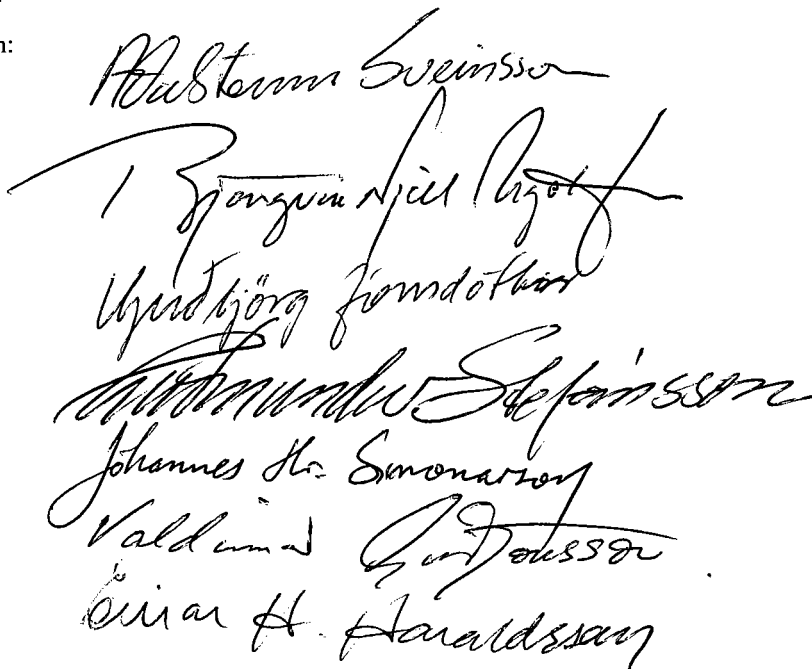 n:
Aðalsteinn Sveinsson
Björgvin Njáll
Guðbjörg Jónsdóttir
Guðmundur Stefánsson
Jóhannes Hr. Símonarson
Valdimar Guðjónsson
Einar H. Haraldsson